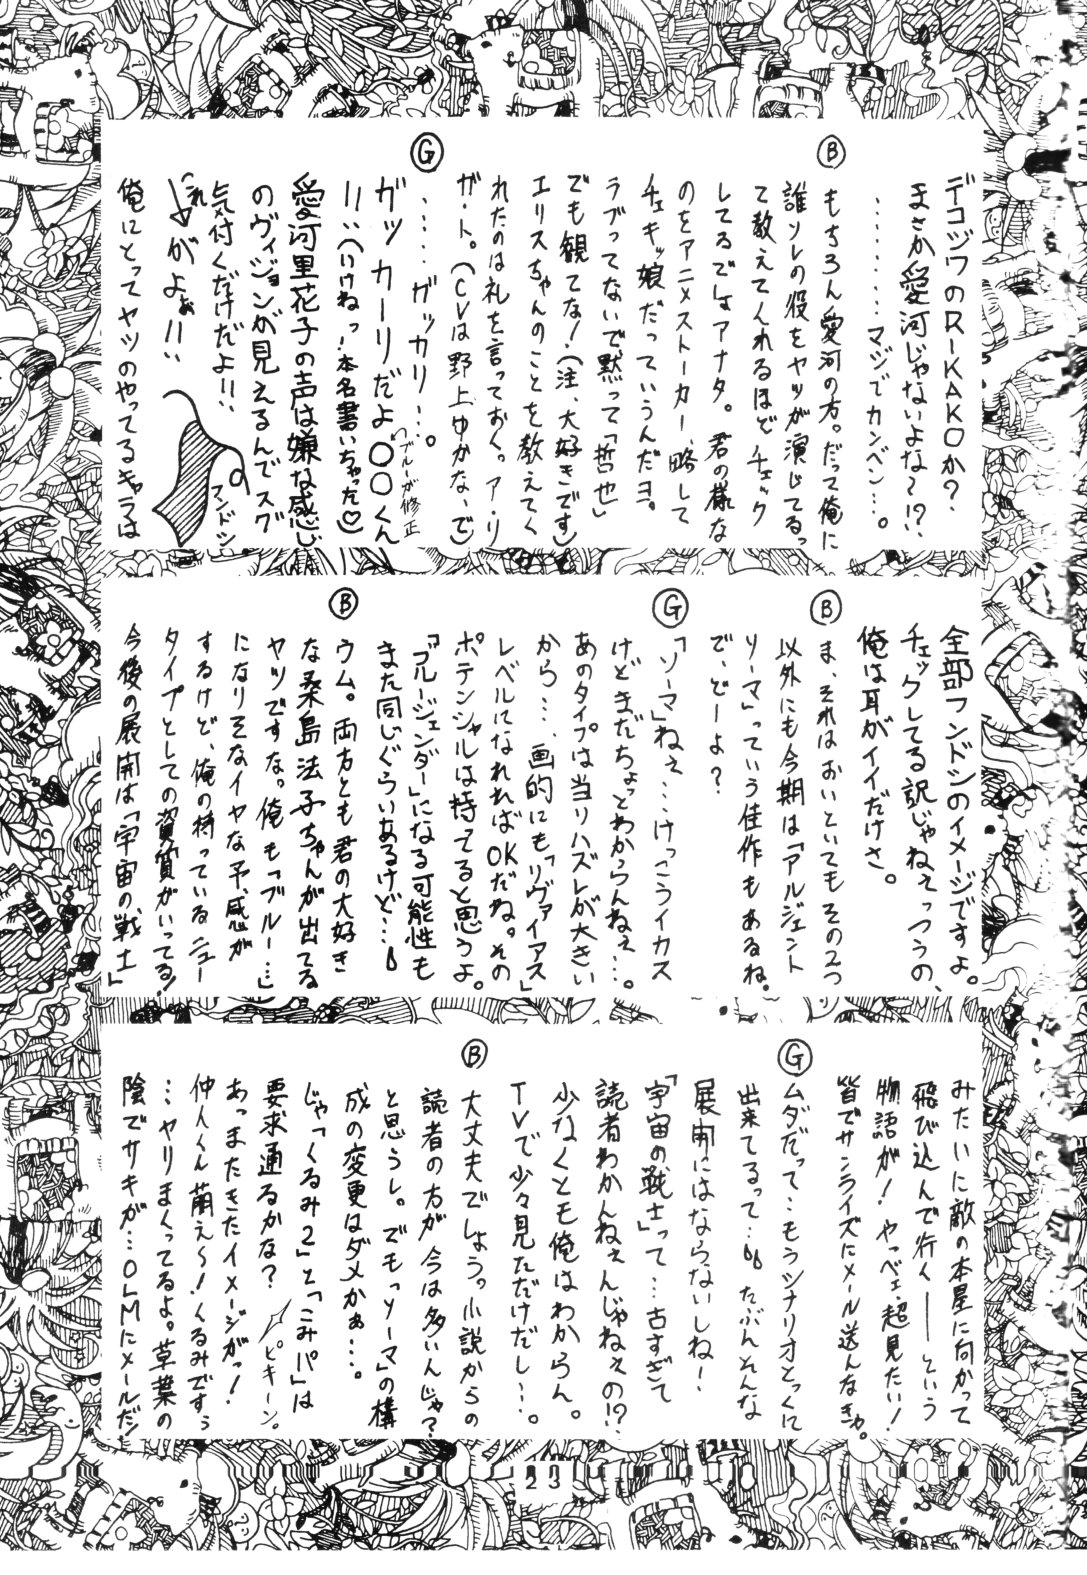 デコジワのRIKAKOか?
まさか愛河じゃないよな〜!?
………マジでカンベン…。
Ⓑ
もちろん愛河の方。だって俺に
誰ソレの役をヤツが演じてるっ
て教えてくれるほどチェック
してるでしょアナタ。君の様な
のをアニメストーカー、略して
チェキッ娘だっていうんだヨ。
ラブってないで黙って「哲也」
でも観てな!(注、大好きです)
エリスちゃんのことを教えてく
れたのは礼を言っておく。ア・リ
ガ・ト。(CVは野上ゆかな、で)
Ⓖ
……ガッカリ…。
ガッカーリだよ○○くん
ブルーが修正
!!(いけねっ!本名書いちゃった♡)
愛河里花子の声は嫌な感じ
のヴィジョンが見えるんでスグ
気付くだけだよ!!
これ
がよぉ!!
フンドシ
俺にとってヤツのやってるキャラは
全部フンドシのイメージですよ。
チェックしてる訳じゃねぇっつうの、
俺は耳がイイだけさ。
Ⓑ
ま、それはおいといてもその2つ
以外にも今期は「アルジェント
ソーマ」っていう佳作もあるね。
で、どーよ?
Ⓖ
「ソーマ」ねぇ…けっこうイカス
けどまだちょっとわからんねぇ…。
あのタイプは当りハズレが大きい
から…画的にも「リヴァイアス」
レベルになれればOKだね。その
ポテンシャルは持ってると思うよ。
「ブルージェンダー」になる可能性も
また同じぐらいあるけど…
Ⓑ
ウム。両方とも君の大好き
な桑島法子ちゃんが出てる
ヤツですな。俺も「ブルー…」
になりそなイヤな予感が
するけど、俺の持っているニュー
タイプとしての資質がいってる!
今後の展開は「宇宙の戦士」
みたいに敵の本星に向かって
飛び込んで行く――という
物語が!やっべェ超見たい!
皆でサンライズにメール送んなきゃ。
Ⓖ
ムダだって…もうシナリオとっくに
出来てるって…たぶんそんな
展開にはならないしね!
「宇宙の戦士」って…古すぎて
読者わかんねぇんじゃねぇの!?
少なくとも俺はわからん。
TVで少々見ただけだし…。
Ⓑ
大丈夫でしょう。小説からの
読者の方が今は多いんじゃ?
と思うし。でも「ソーマ」の構
成の変更はダメかぁ…。
じゃ「くるみ2」と「こみパ」は
要求通るかな? ピキーン。
あっまたきたイメージがっ!
仲人くん萌え〜!くるみですぅ
…ヤリまくってるよ。草葉の
陰でサキが…OLMにメールだ!
23